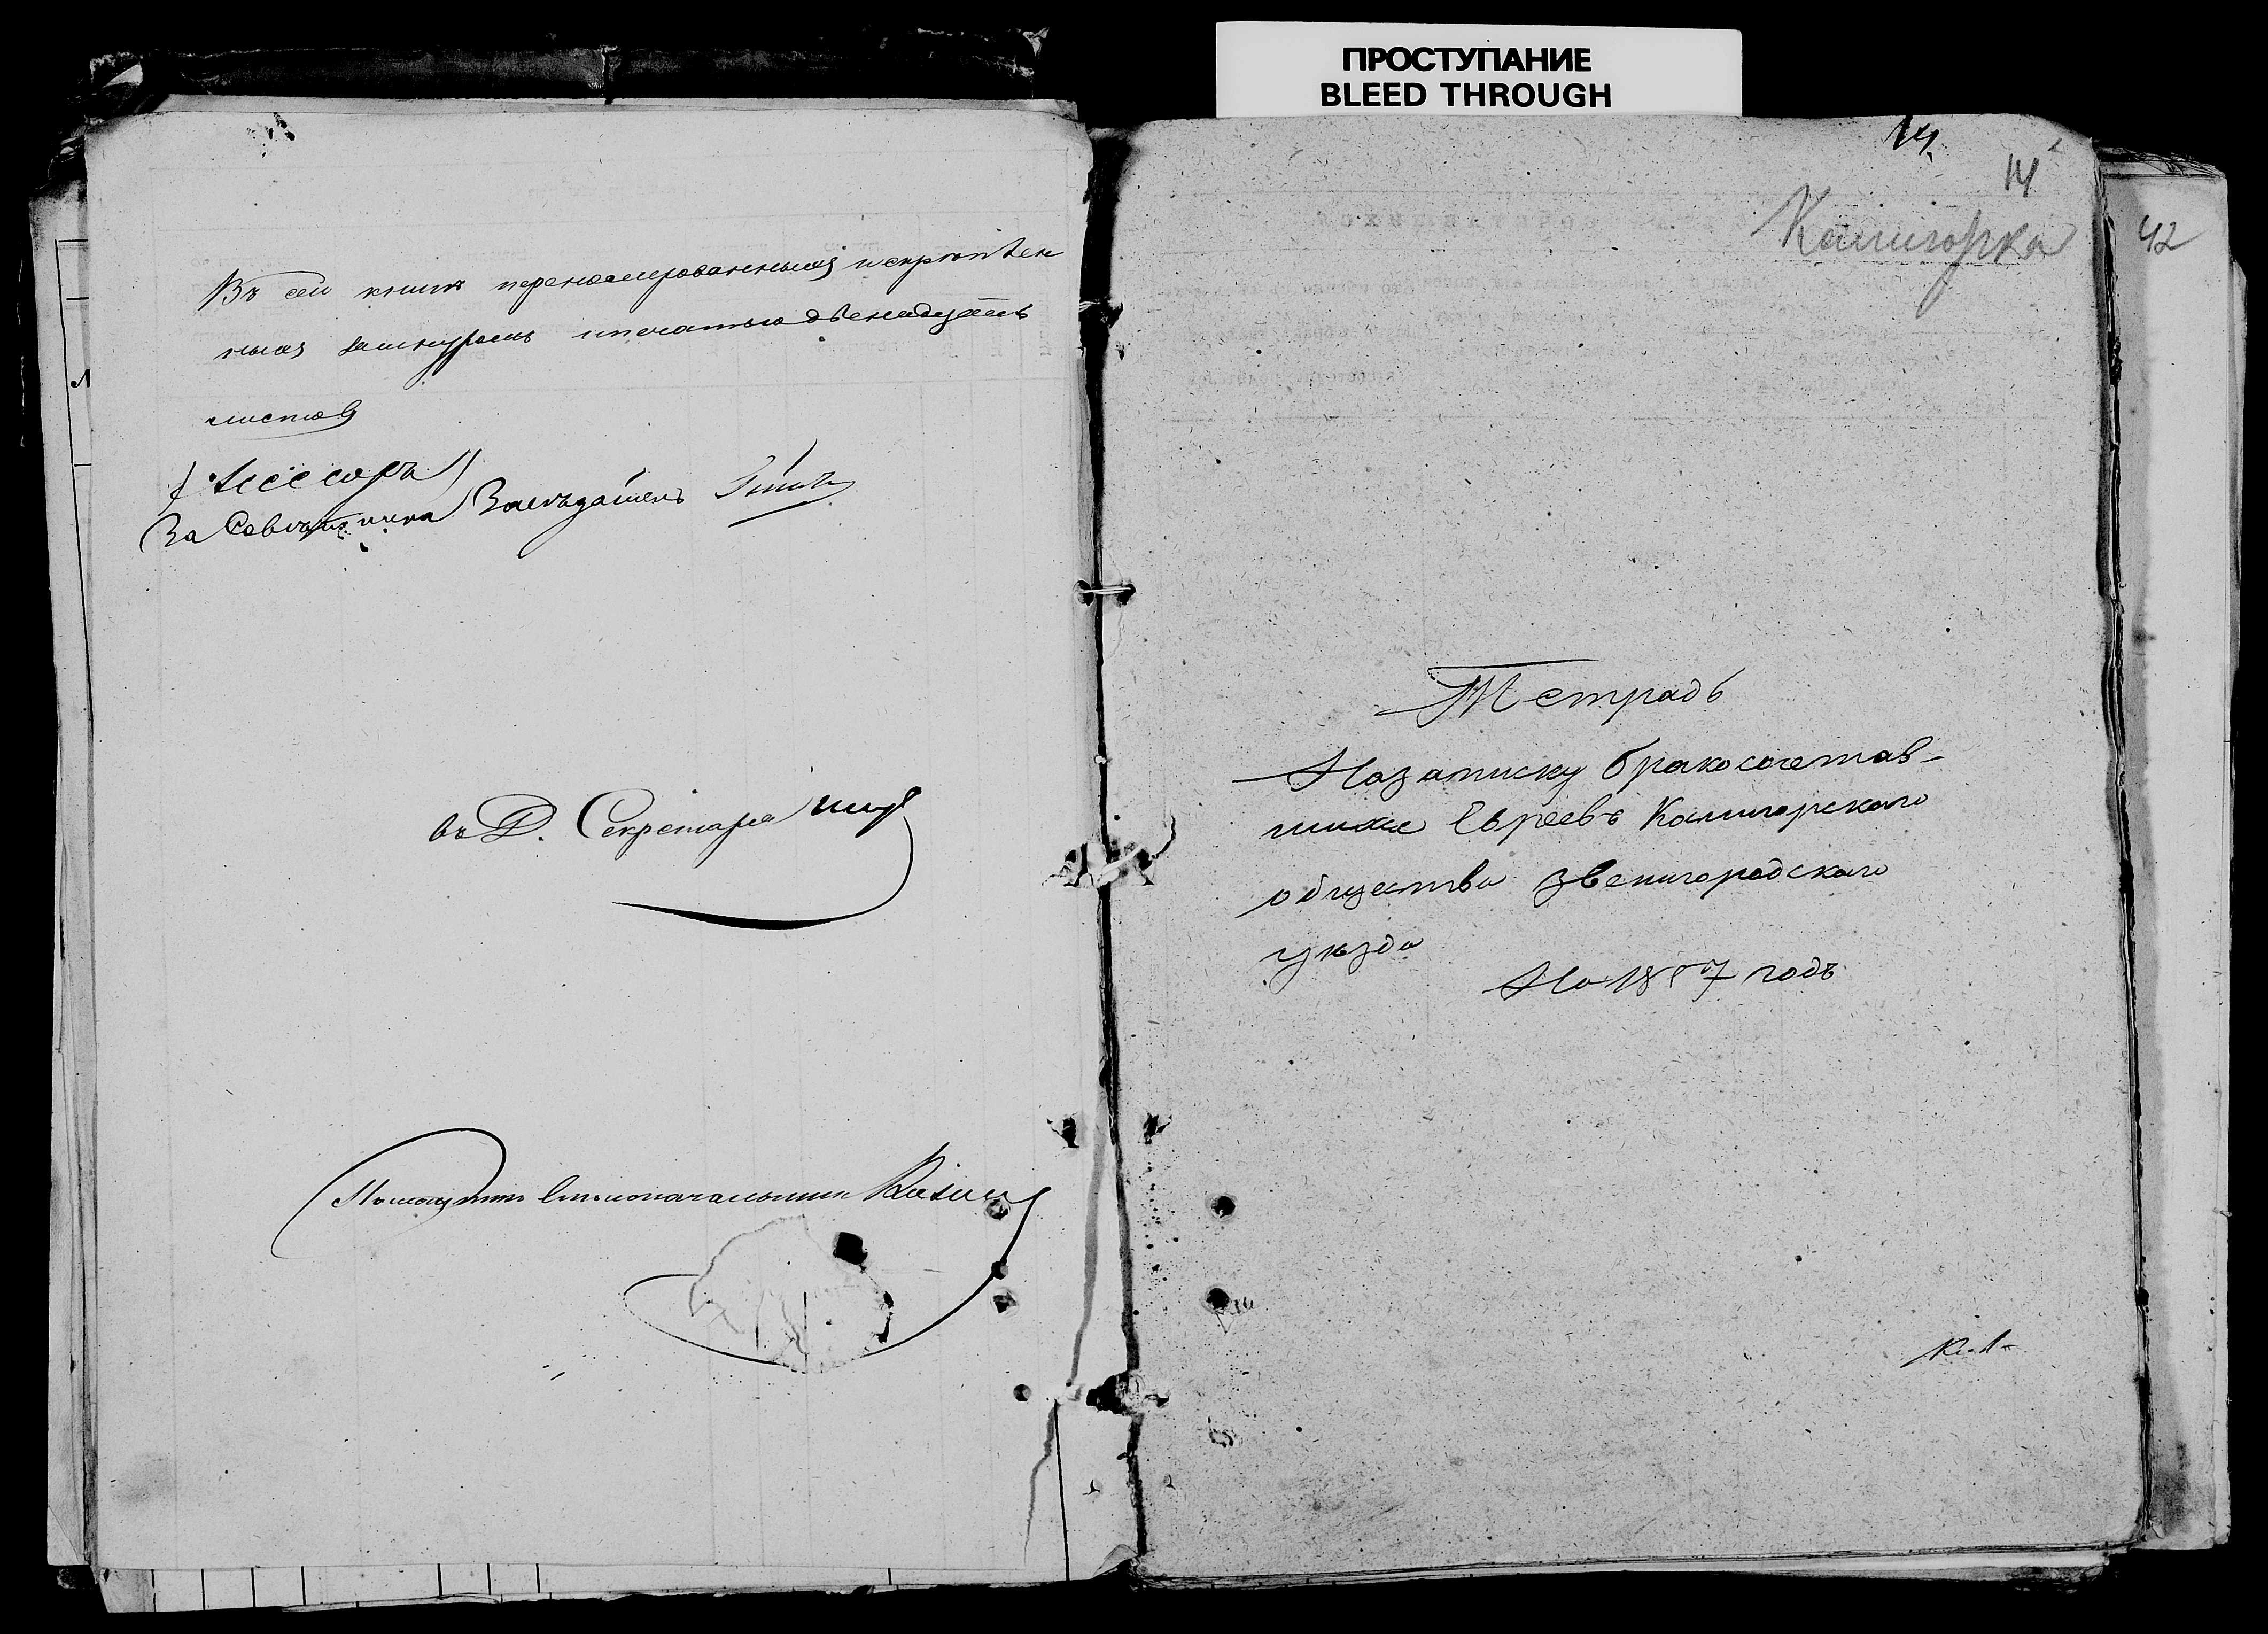 ПРОСТУПАНИЕ
BLEED THROUGH
Въ сей книгѣ перенумерованныхъ и скрѣплен
ныхъ шнуромъ и печатью двенадцать
листовъ
Ассесоръ
За Совѣтника Засѣдатель
въ Д. Секретаря
Помощникъ Столоначальника
14
14
Калигорка
42
Тетрадь
На записку бракосочетав-
шихся Евреевъ Калигорскаго
общества Звенигородскаго
уѣзда
На 1857 годъ